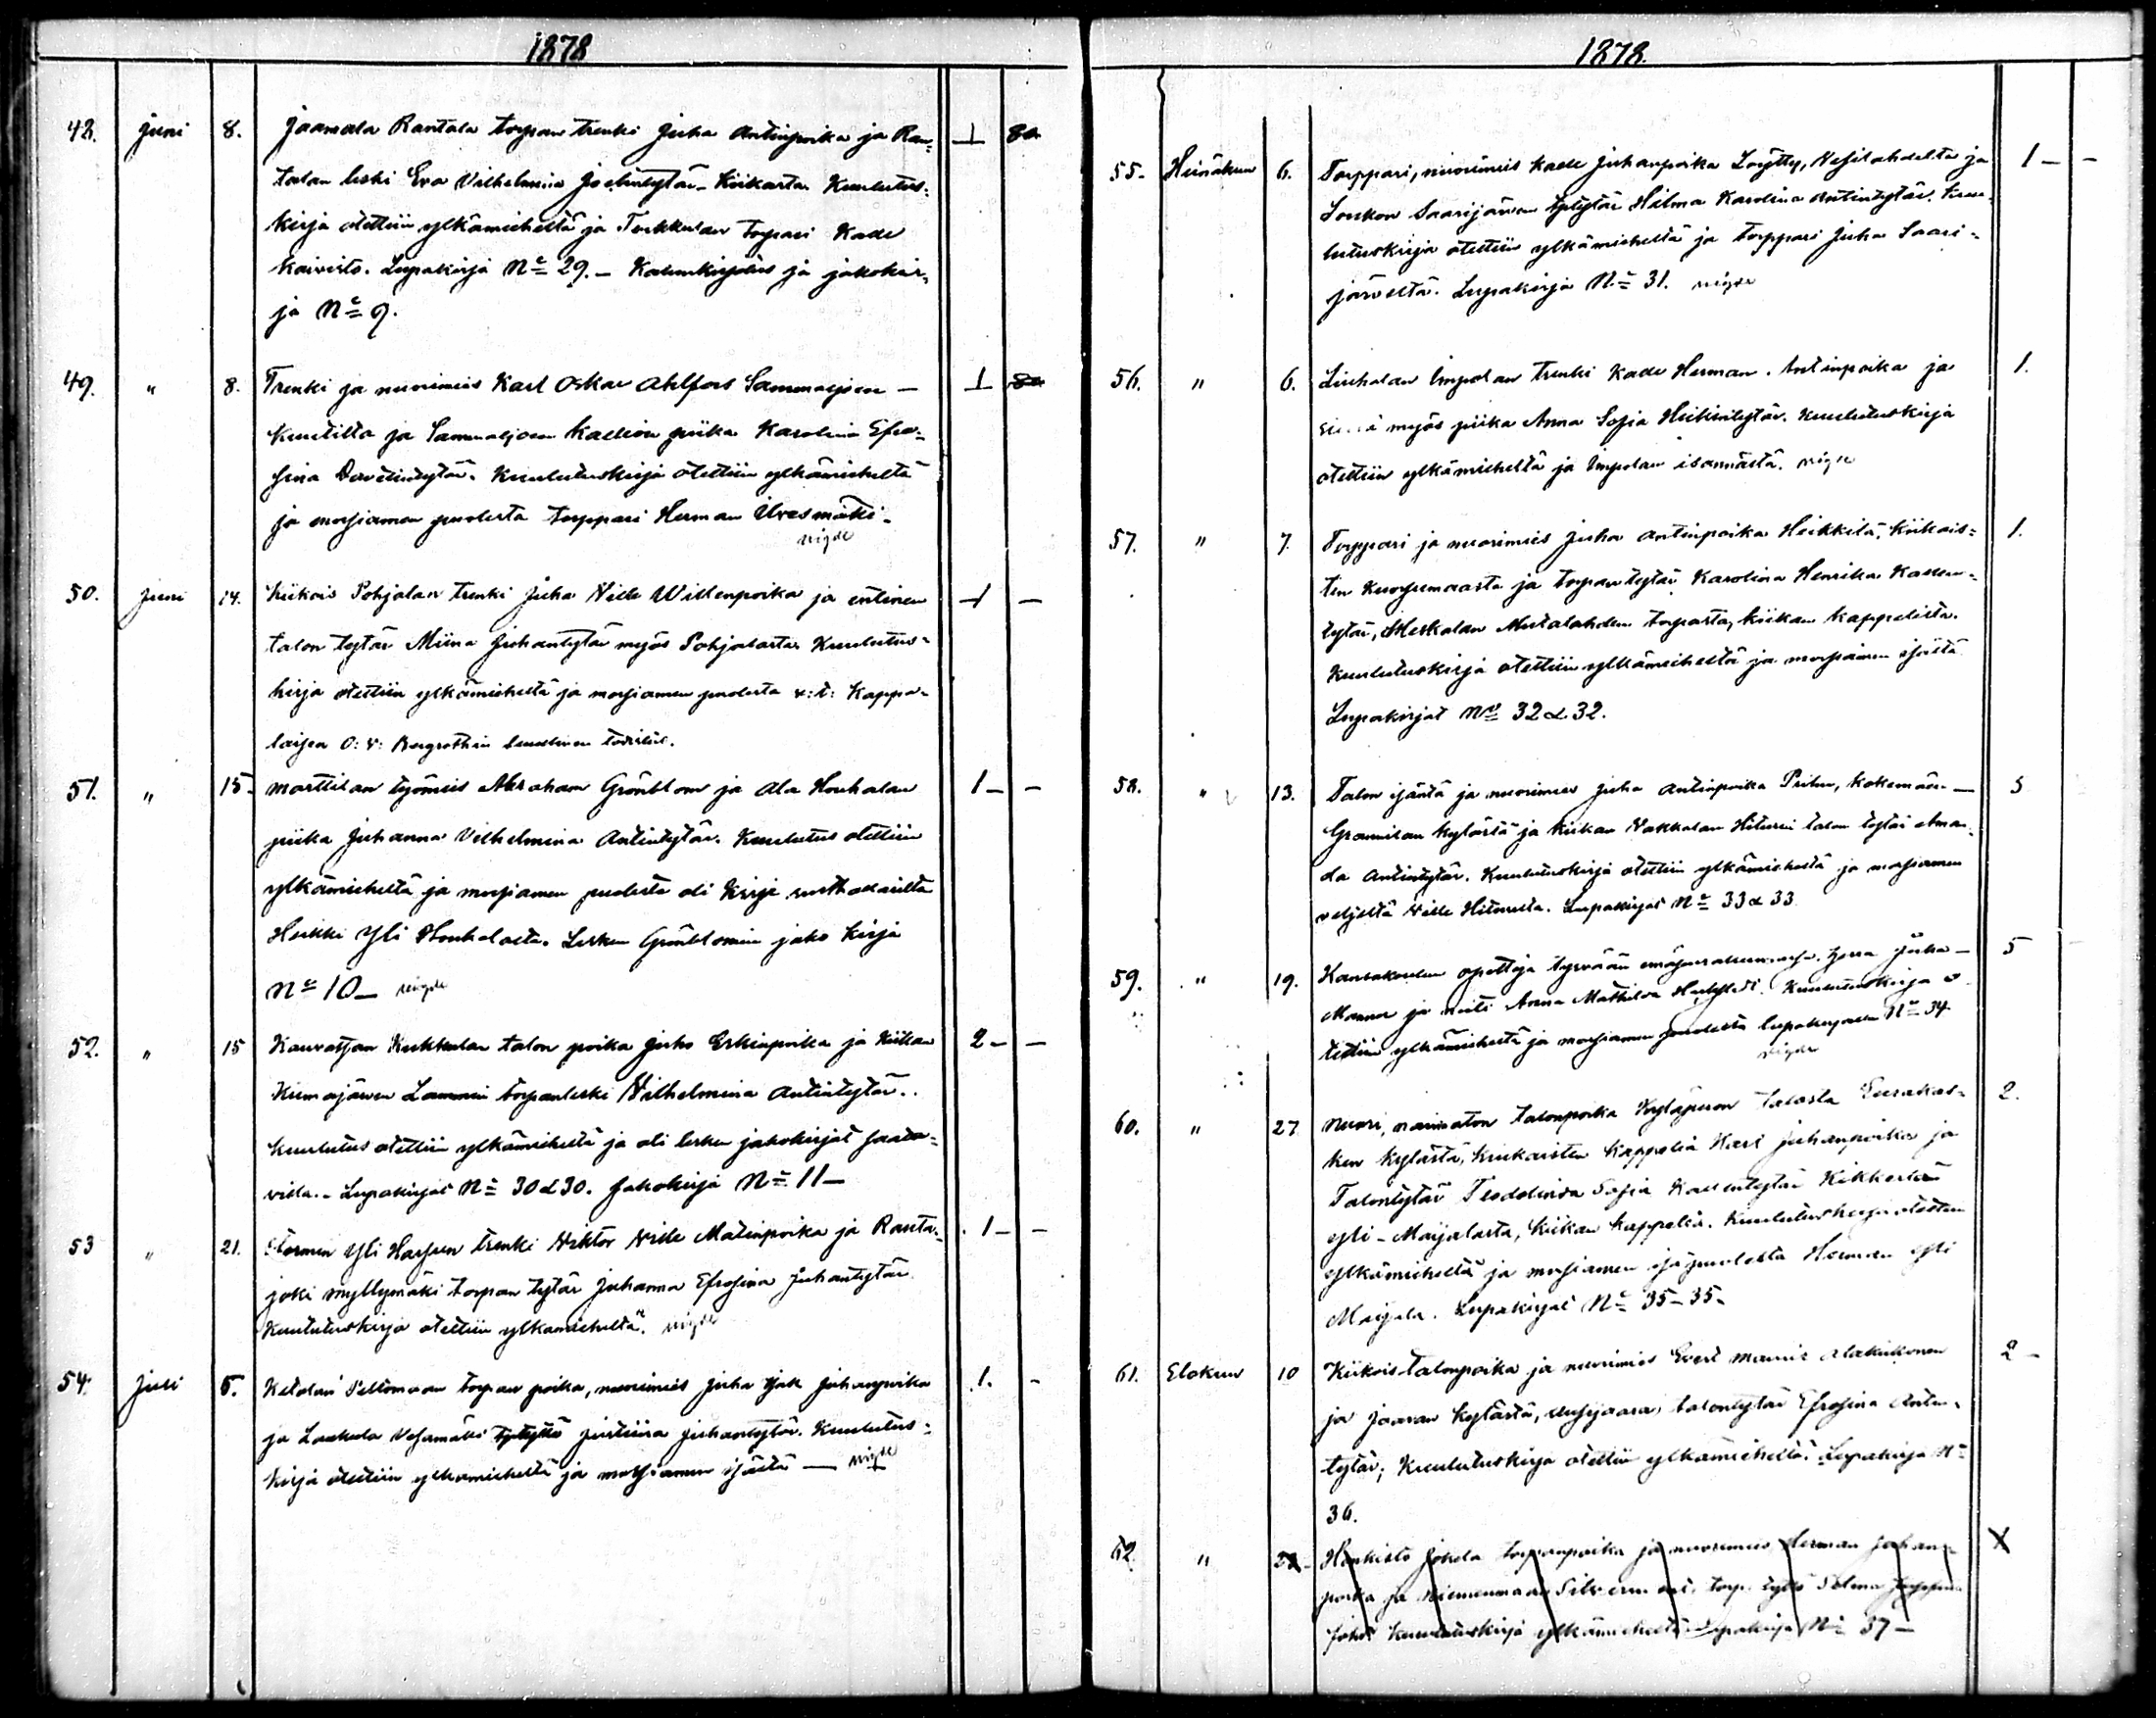 1878
48. Juni 8. Jaamala Rantala torpan trenki Juha Antinpoika ja Ran- 1 80
talan leski Eva Vilhelmina Joelintytär Kiikasta. Kuulutus-
kirja otettiin ylkämieheltä ja Torkkulan torpari Kalle
Koivisto. Lupakirja No 29. – Kaluunkirjoitus ja jakokir-
ja No 9.
49. " 8. Trenki ja nuorimies Karl Oskar Ahlfors Sammaljoen – 1 80
Kuutilta ja Sammaljoen Kallion piika Karolina Efro-
sina Davidintytär. Kuulutuskirja otettiin ylkämieheltä
ja morsiamen puolesta torppari Herman Uvesmäki.
vigde
50. Juni 14. Kiikois Pohjalan trenki Juha Ville Willenpoika ja entinen 1 –
talon tytär Miina Juhantytär myös Pohjalasta. Kuulutus-
kirja otettiin ylkämieheltä ja morsiamen puolesta v:t: Kappa-
laisen O: V: Bergrothin luvallinen todistus.
51. " 15. Marttilan työmies Abraham Grönblom ja Ala Houhalan 1 – –
piika Juhanna Vilhelmina Antintytär. Kuulutus otettiin
ylkämieheltä ja morsiamen puolesta oli kirje rusthollarilta
Heikki Yli Houhalasta. Lesken Grönblomin jako kirja
No 10 – vigde
52. " 15 Kauvatsan Kukkulan talon poika Juho Erkinpoika ja Kiikan 2 – –
Kiimajärven Lammin torpanleski Vilhelmina Antintytär.
Kuulutus otettiin ylkämieheltä ja oli lesken jakokirjat saata-
villa. – Lupakirjat No 30 & 30. Jakokirja No 11 –
53 " 21. Yli trenki Viktor Ville Matinpoika ja Ranta- 1 – –
joki myllymäki torpan tytär Juhanna Efrosina Juhantytär
Kuulutuskirja otettiin ylkämieheltä. vigde
54. Juli 5. Ketolan Peltomaan torpan poika, nuorimies Juha Isak Juhanpoika 1. –
ja Laukula Vesamäki Justiina Juhantytär. Kuulutus-
kirja otettiin ylkämieheltä ja morsiamen isältä – vigde
1878.
55. Heinäkuu 6. Torppari, nuorimies Kalle Juhanpoika Löytty, Vesilahdelta ja 1 – –
Soukon Saarijärven Hilma Karolina Antintytär. Kuu-
lutuskirja otettiin ylkämieheltä ja torppari Juha Saari-
järveltä. Lupakirja No 31. vigde
56. " 6. Liuhalan Impolan trenki Kalle Herman Antinpoika ja 1.
myös piika Anna Sofia Heikintytär. Kuulutuskirja
otettiin ylkämieheltä ja Impolan isännästä. vigde
57. " 7. Torppari ja nuorimies Juha Antinpoika Heikkilä, Kiikois-
ten Kuorsumaasta ja torpan tytär Karolina Henrika Kallen- 1.
tytär, Meskalan Mustalahden torpasta, Kiikan kappelista.
Kuulutuskirja otettiin ylkämieheltä ja morsiamen isältä
Lupakirjat No 32 & 32.
58. " 13. Talon isäntä ja nuorimies Juha Antinpoika Pirilu, Kokemäen – 5
kylästä ja Kiikan Vakkalan Hiturin talon tytär Aman-
da Antintytär. Kuulutuskirja otettiin ylkämieheltä ja morsiamen
veljeltä Ville Hiturilta. Lupakirjat No 33 & 33
59. " 19. Kansakoulun opettaja Tyrvään herra Juha – 5
Manner ja neiti Anna Mathilda Kuulutuskirja o-
tettiin ylkämieheltä ja morsiamen puolesta lupakirjalla No 34.
vigde
60. " 27. Nuori, naimaton talonpoika Kyläpuron talosta 2.
ken kylästä, Kiukaisten Kappelia Karl Juhanpoika ja
Talontytär Teodolinda Sofia Kallentytär
Yli-Maijalasta, Kiikan kappelia. Kuulutuskirja otettiin
ylkämieheltä ja morsiamen isäpuolesta Herman Yli
Maijala. Lupakirjat No 35 – 35 –
61. Elokuu 10 Kiikois talonpoika ja nuorimies Evert Mauriz Alakiikonen 2 –
ja Jaaran kylästä, talontytär Efrosina Antin-
tytär; Kuulutuskirja otettiin ylkämieheltä. Lupakirja No
36.
62. " Honkisto Jokela torpanpoika ja nuorimies Herman Juhan- X
poika ja Niemenmaan torp. tyttö Selma
Kuulutuskirja ylkämieheltä Lupakirja No 37 –